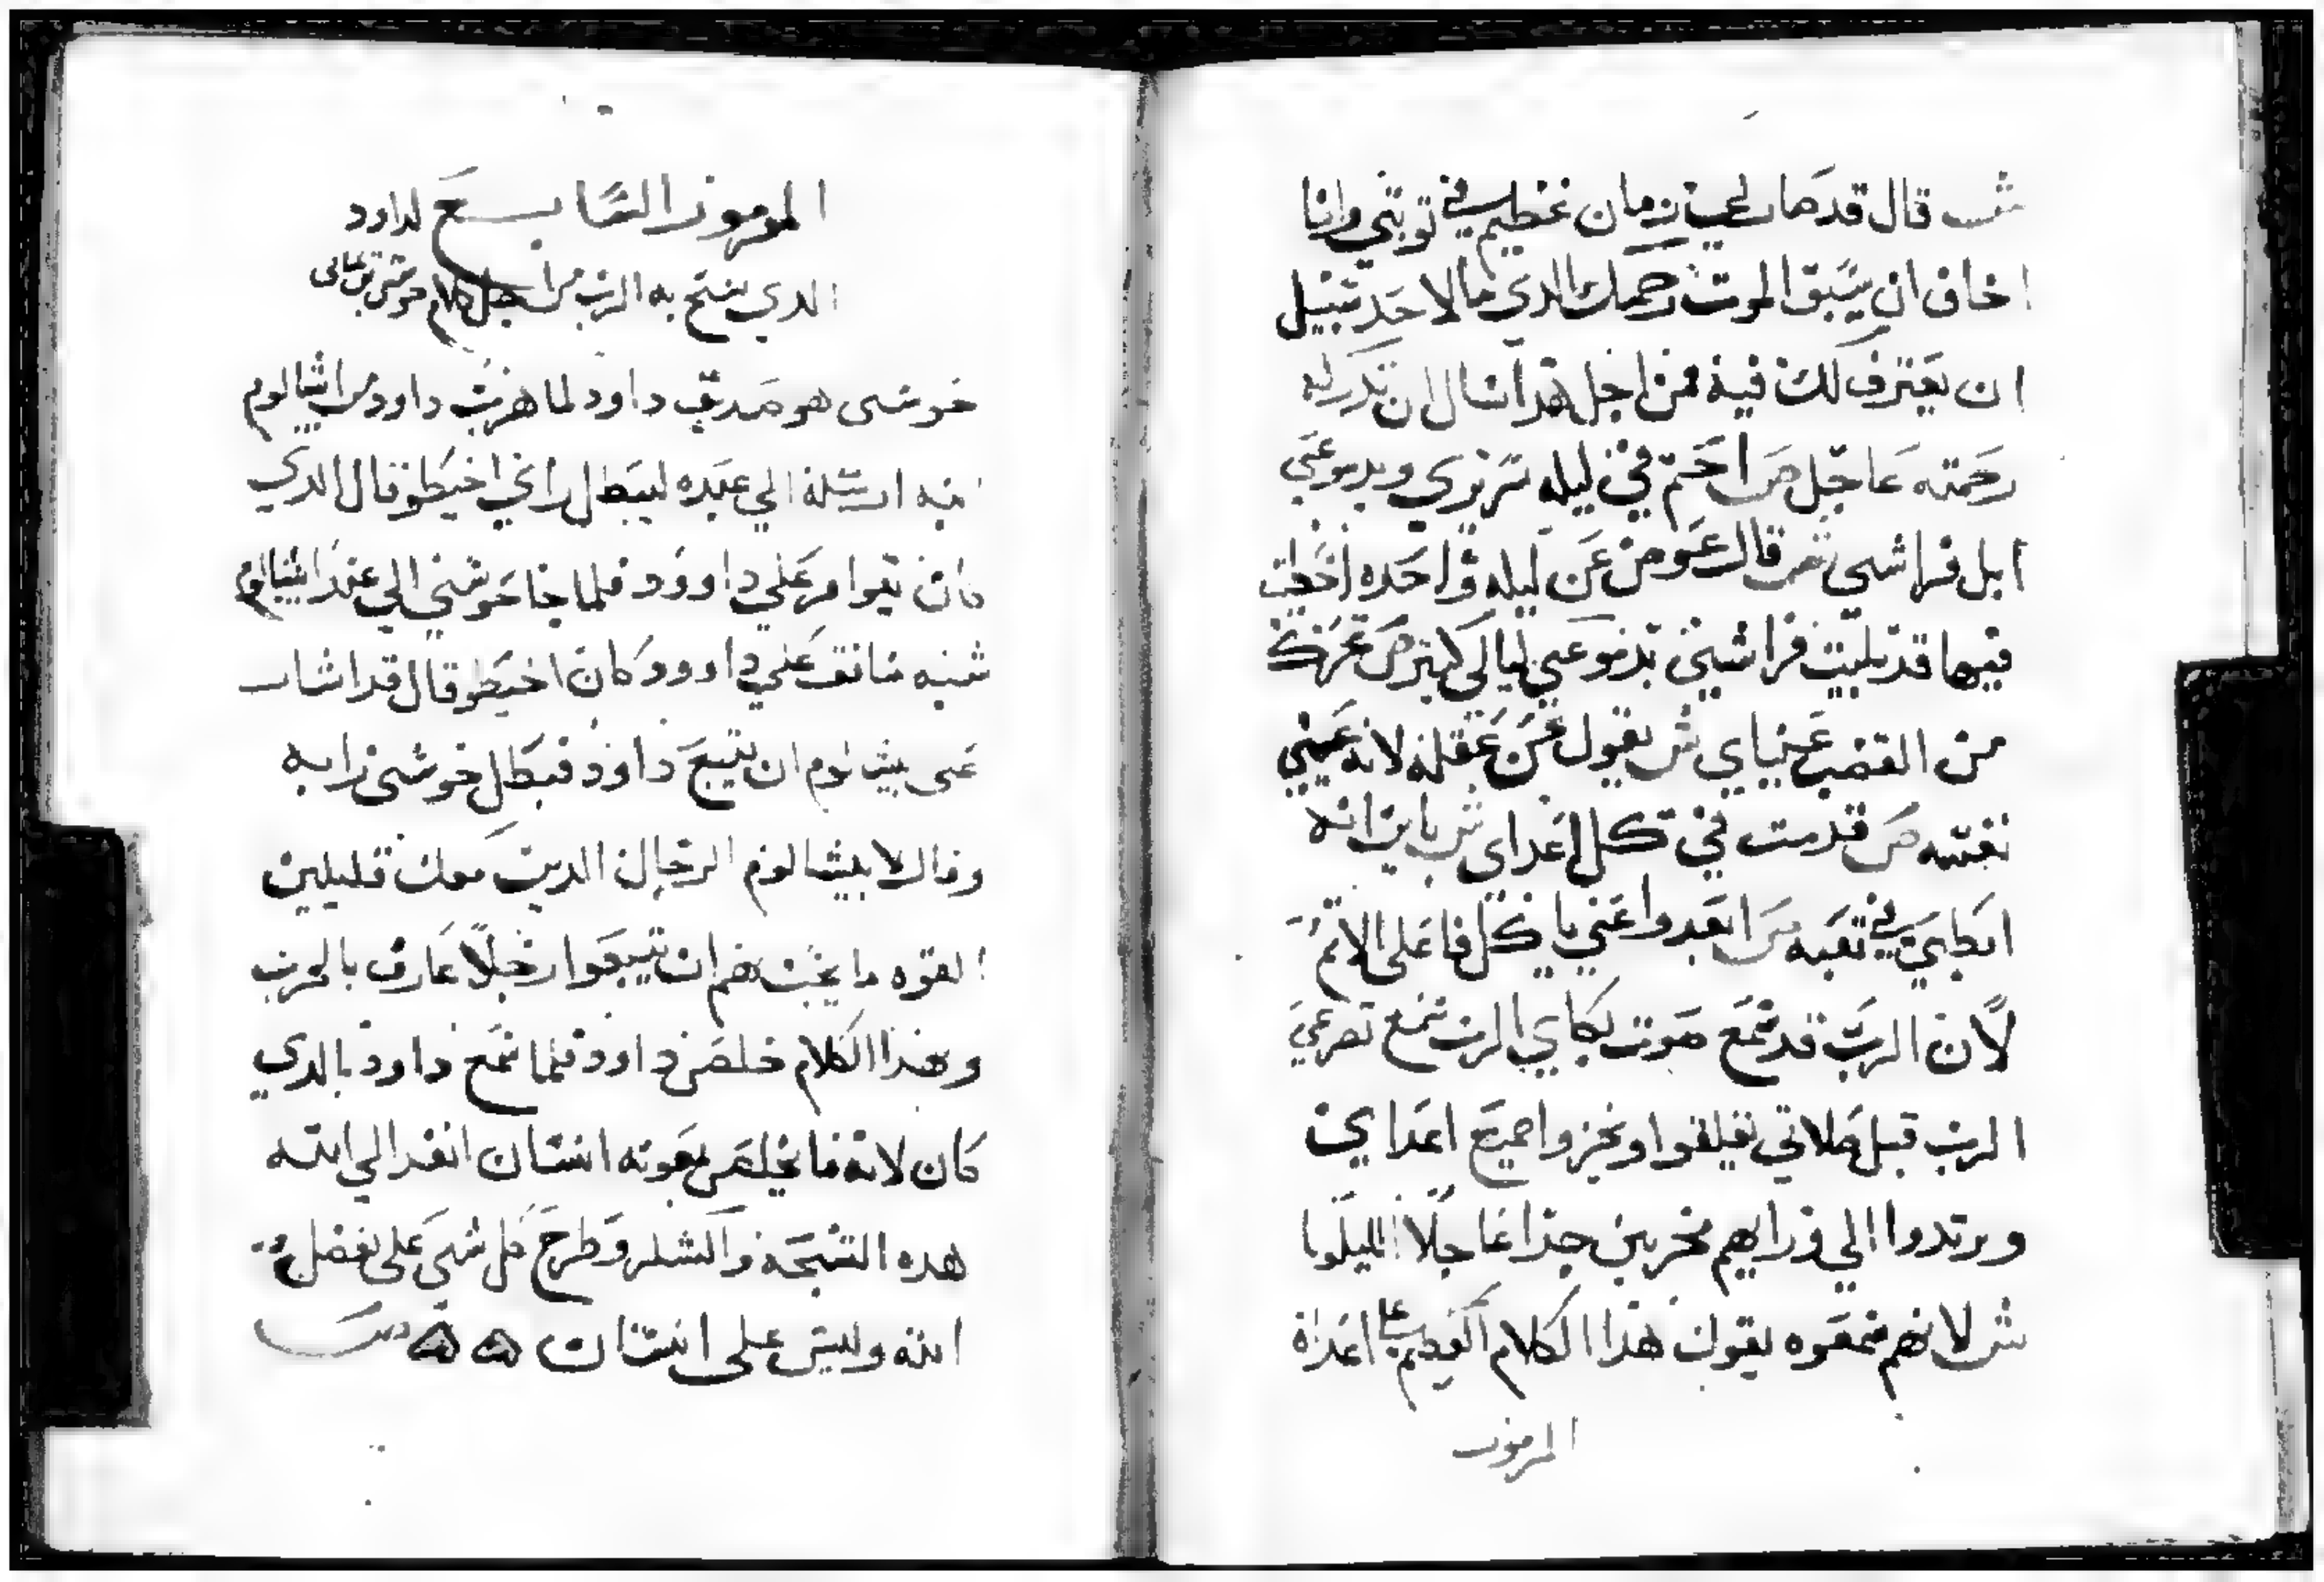 ش قال قد صار لي زمان عظيم في توبتي وانا
اخاف ان يسبق الموت رحمتك الدي ما لاحد سبيل
ان يعترف لك فيه فمن اجل هدا اسال ان تدركه
رحمته عاجل ص احمم في ليله سريري وبدموعي
ابل فراشي ش قال عوض عن ليله واحده اخطات
فيها قد بليت فراشي بدموعي ليالي كتير ص تعكرت
من الغضب عيناي ش يقول عن عقله لانه عيني
نفسه ص قدمت في كل اعداي ش باين انه
ابطا في تعبه ص ابعدوا عني يا كل فاعلى الاتم
لان الرب قد سمع صوت بكاي الرب سمع تضرعي
الرب قبل صلاتي فليقوا ويخزوا جميع اعداي
ويرتدوا الي ورايهم مخزيين جدا عاجلا الليلويا
ش لانهم سمعوه يقول هدا الكلام العظيم اعداه
المزمور
المزمور السابع لداود
الدي سبح به الرب من اجل كلام حوشى بن يمانى
خوشى هو صديق داود لما هرب داود من ابيشالوم
ابنه ارسله الي عنده ليبطل راي اخيطوفال الدي
كان يوامر علي داوود فلما جا حوشي الي عند ابيشالوم
شبه منافق علي داوود وكان اخيطوفال قد اشار
على بيشالوم ان يتبع داود فبطل خوشى رايه
وقال لابيشالوم الرجال الدين معك قليلين
القوه ما يجب لهم ان يتبعوا رجلا عارف بالحرب
وبهدا الكلام خلص داود فلما سمع داود بالدي
كان لانه ما يخلص بقوته انسان انفد الي الله
هده التسبحه والشكر وطرح كل شي على فضل
الله وليس على انسان